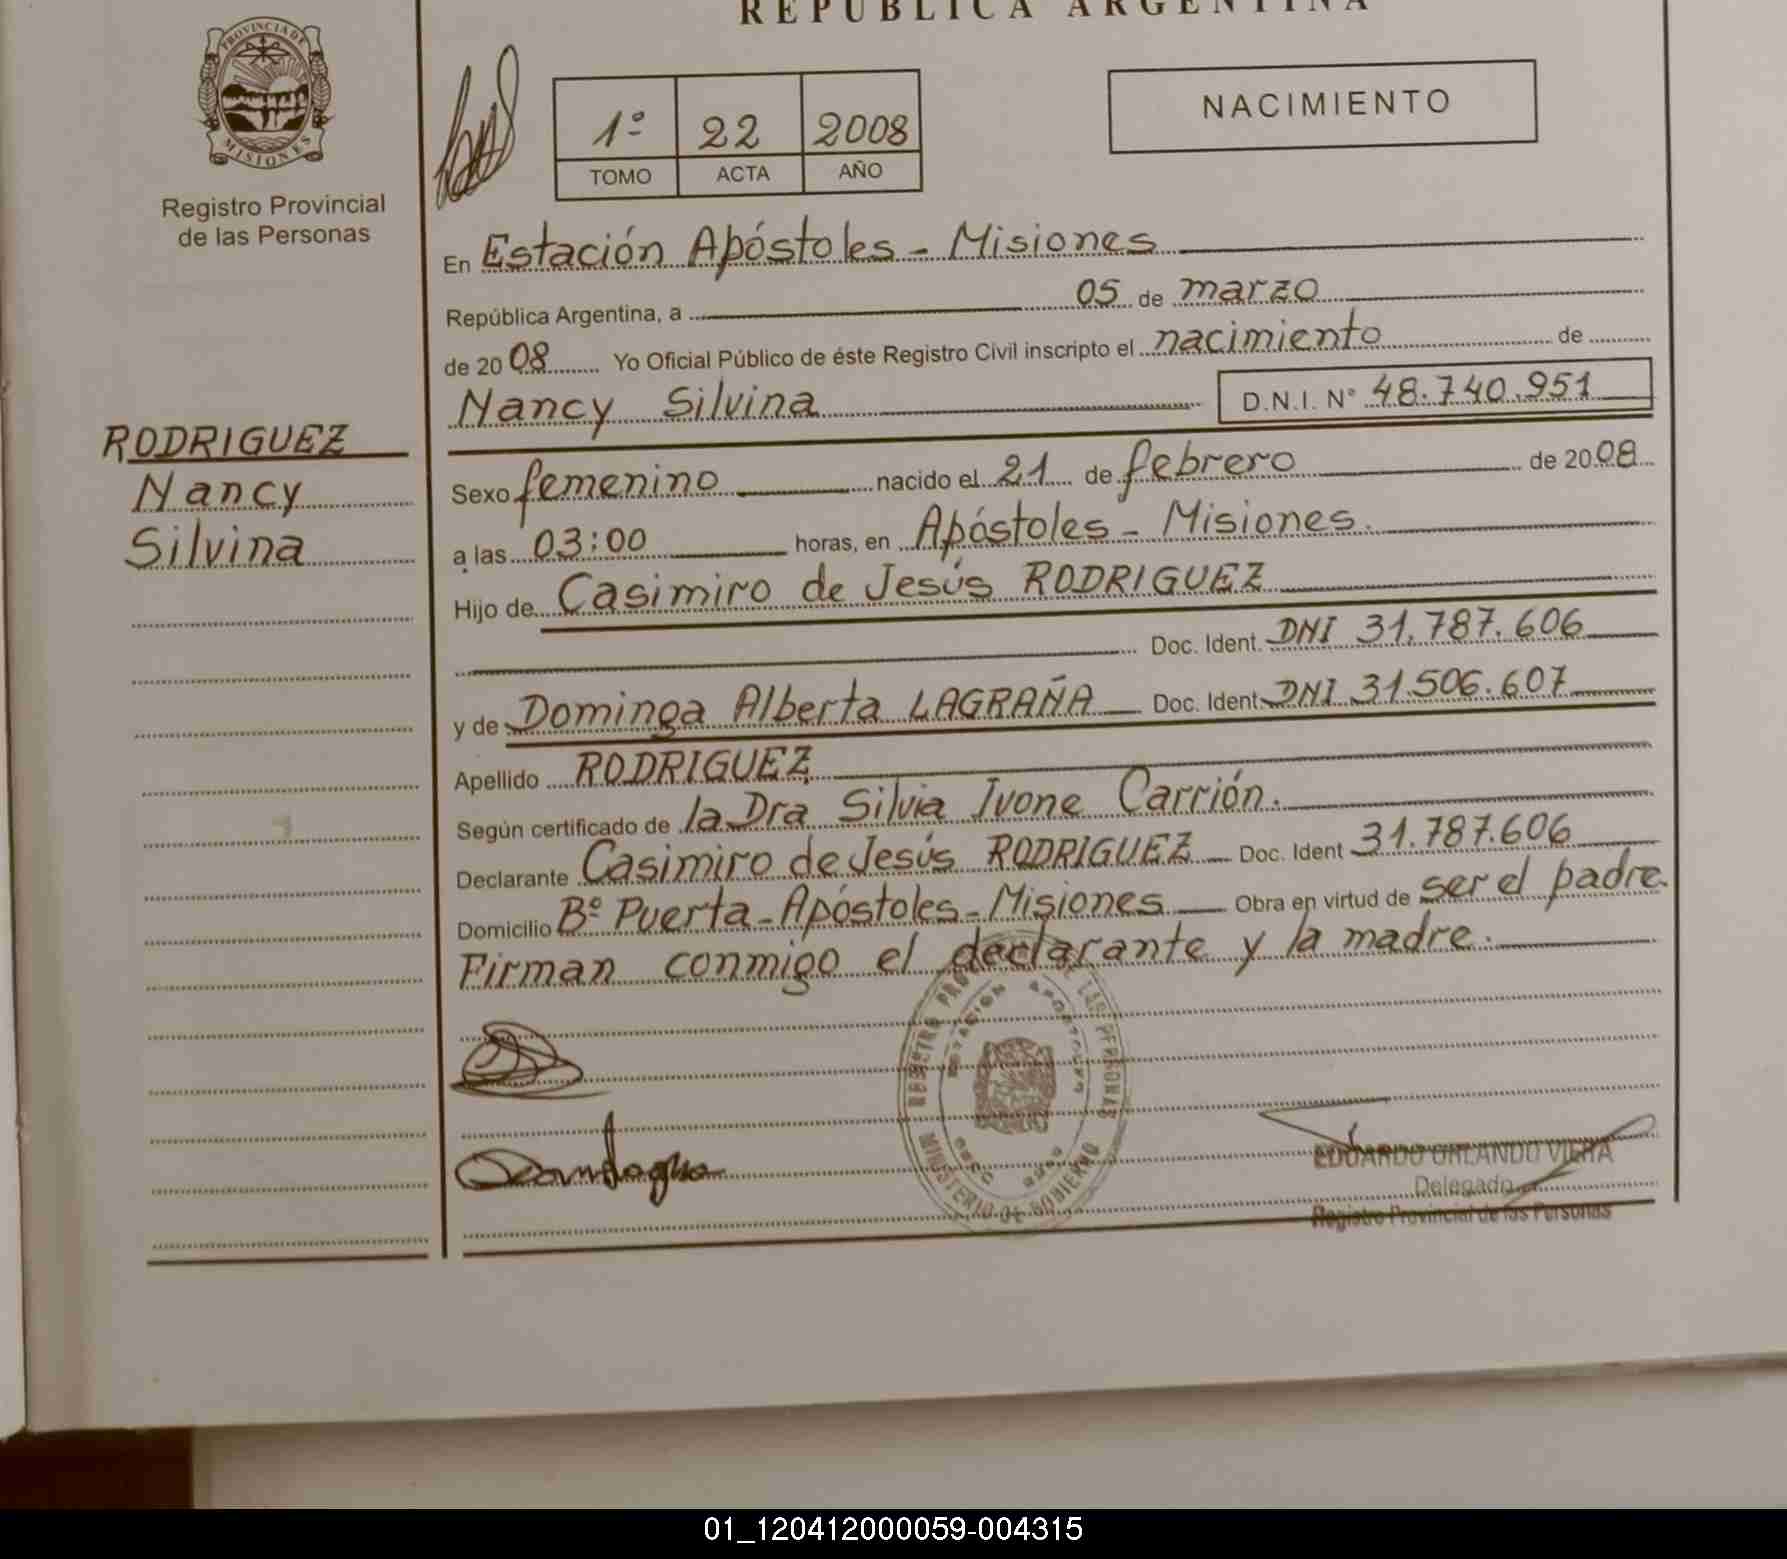 REPUBLICA ARGENTINA
PROVINCIA DE
MISIONES
Registro Provincial
de las Personas
1º 22 2008
TOMO ACTA AÑO
NACIMIENTO
En Estación Apóstoles - Misiones
República Argentina, a 05 de marzo
de 2008 Yo Oficial Público de éste Registro Civil inscripto el nacimiento de
Nancy Silvina D.N.I. Nº 48.740.951
RODRIGUEZ
Nancy
Silvina
Sexo femenino nacido el 21 de febrero de 2008
a las 03:00 horas, en Apóstoles - Misiones.
Hijo de Casimiro de Jesús RODRIGUEZ
Doc. Ident. DNI 31.787.606
y de Dominga Alberta LAGRAÑA Doc. Ident. DNI 31.506.607
Apellido RODRIGUEZ
Según certificado de la Dra Silvia Ivone Carrión.
Declarante Casimiro de Jesús RODRIGUEZ Doc. Ident 31.787.606
Domicilio Bº Puerta - Apóstoles - Misiones Obra en virtud de ser el padre.
Firman conmigo el declarante y la madre.
REGISTRO PROV. DE LAS PERSONAS
ESTACION APOSTOLES
MINISTERIO DE GOBIERNO
EDUARDO ORLANDO VIERA
Delegado
Registro Provincial de las Personas
01_120412000059-004315